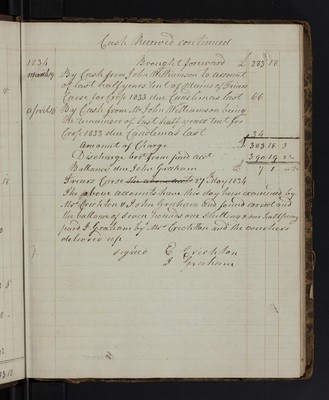 Cash Received continued
1834 Brought forward £ 283 18
March 19 By Cash from John Williamson to account
of last half years rent of Mains of Friars
Carse for Crop 1833 due Candlemas last 66
April 18 By Cash from Mr John Williamson being
the remainder of last half years rent for
Crop 1833 due Candlemas last 34
Amount of Charge £ 383 18 3
Discharge brot from ford acct 390 19
Ballance due John Graham £ 7 1
Friars Carse 27th May 1834
The above accounts have this day been examined by
Mrs Crichton & John Graham and found correct and
the ballance of seven pounds one shilling & one halfpenny
paid J Graham by Mrs Crichton and the vouchers
delivered up
signed E Crichton
J Graham